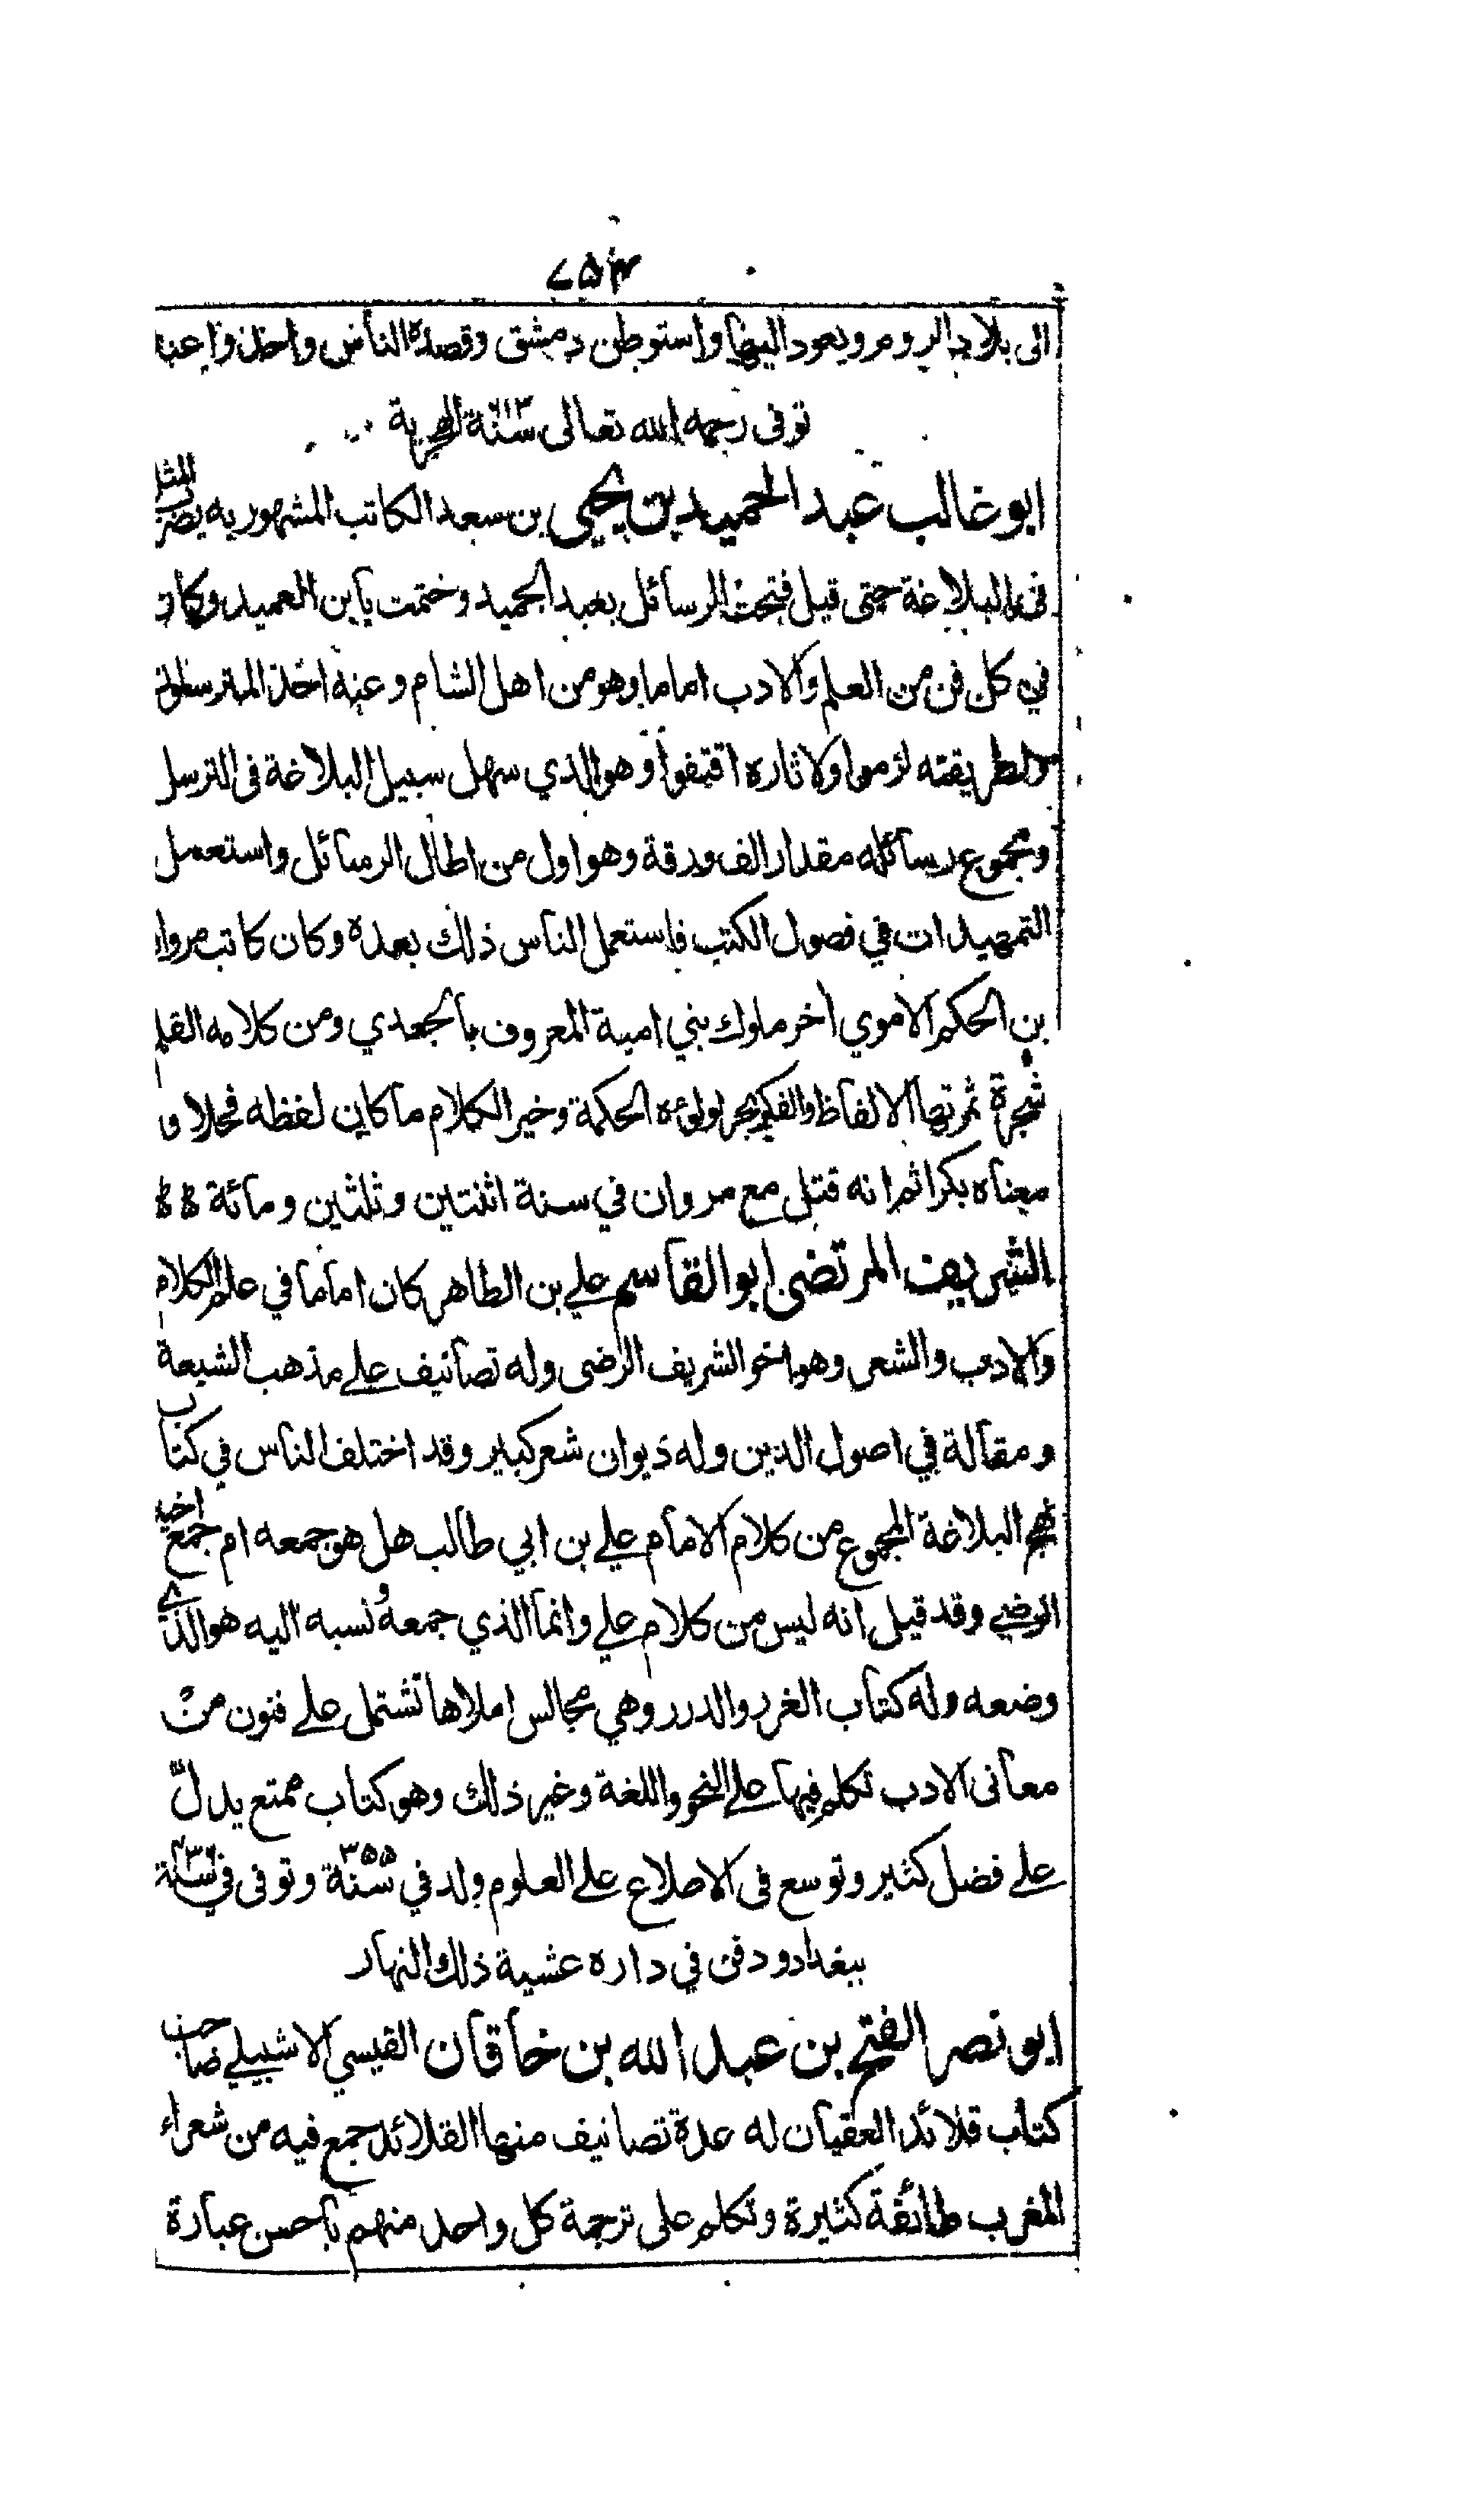 ٧٥٣
الى بلاد الروم ويعود اليها واستوطن دمشق وقصده الناس واخذوا عنه
توفى رحمه الله تعالى سنة ٦١٣ الهجرية
ابو غالب عبد الحميد بن يحيى بن سعد الكاتب المشهور به يضرب المثل
فى البلاغة حتى قيل فتحت الرسائل بعبد الحميد وختمت بابن العميد وكان
في كل فن من العلم والادب اماما وهو من اهل الشام وعنه اخذ المترسلون
ولطريقته لزموا ولاثاره اقتفوا وهو الذي سهل سبيل البلاغة فى الترسل
ومجموع رسائله مقدار الف ورقة وهو اول من اطال الرسائل واستعمل
التمهيدات في فصول الكتب فاستعمل الناس ذلك بعده وكان كاتب مروان
بن الحكم الاموي اخر ملوك بني امية المعروف بالجعدي ومن كلامه القلم
شجرة ثمرتها الالفاظ والفكر بحر لولوه الحكمة وخير الكلام ما كان لفظه فحلا و
معناه بكرا ثم انه قتل مع مروان في سنة اثنتين وثلثين ومائة
الشريف المرتضى ابو القاسم علي بن الطاهر كان اماما في علم الكلام
والادب والشعر وهو اخو الشريف الرضى وله تصانيف علے مذهب الشيعة
ومقالة في اصول الدين وله ديوان شعر كبير وقد اختلف الناس في كتاب
نهج البلاغة المجموع من كلام الامام علي بن ابي طالب هل هو جمعه ام جمع اخيه
الرضي وقد قيل انه ليس من كلام علي وانما الذي جمعه ونسبه اليه هو الذي
وضعه وله كتاب الغرر والدرر وهي مجالس املاها تشتمل علے فنون من
معانى الادب تكلم فيها علے النحو واللغة وغير ذلك وهو كتاب ممتع يدل
علے فضل كثير وتوسع فى الاطلاع علے العلوم ولد في سنة ٣٥٥ وتوفى في سنة
ببغداد ودفن في داره عشية ذلك النهار
ابو نصر الفتح بن عبد الله بن خاقان القيسي الاشبيلي صاحب
كتاب قلائد العقيان له عدة تصانيف منها القلائد جمع فيه من شعراء
المغرب طائفة كثيرة وتكلم على ترجمة كل واحد منهم باحسن عبارة